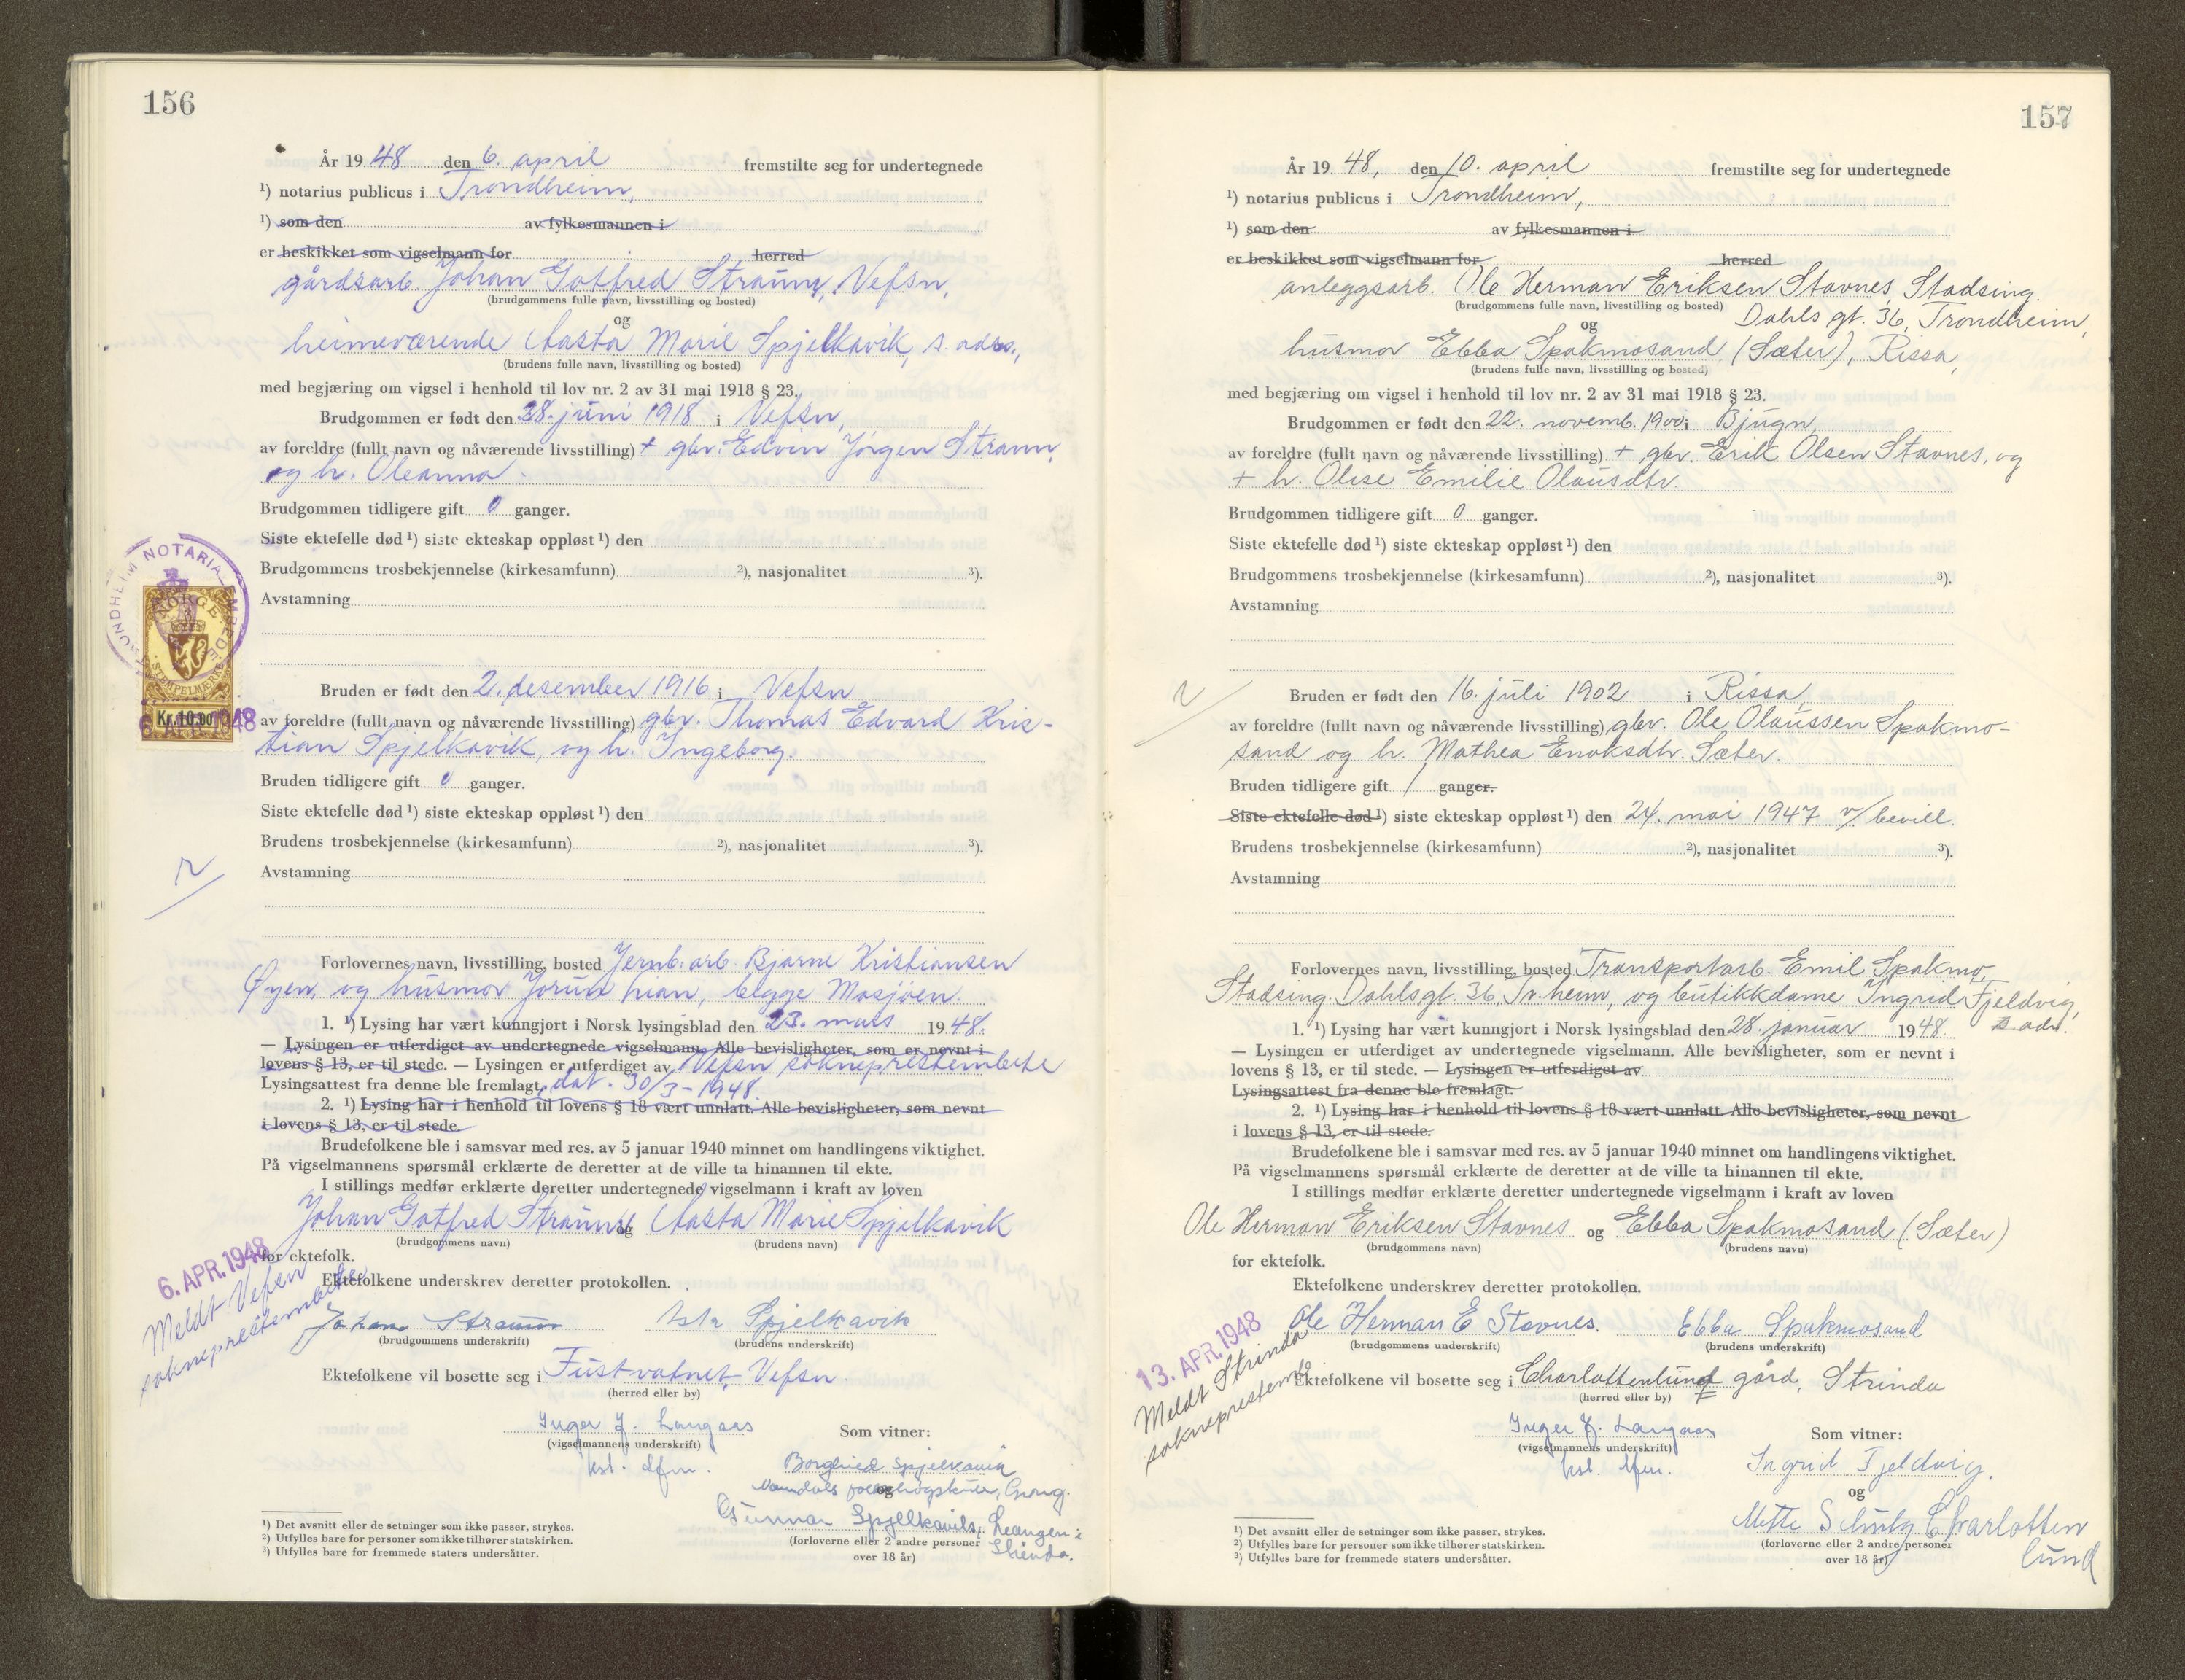 156
År 1948 den 6. april fremstilte seg for undertegnede
¹) notarius publicus i Trondheim,
¹) som den av fylkesmannen i
er beskikket som vigselmann for herred
gårdsarb. Johan Gotfred Straum, Vefsn,
(brudgommens fulle navn, livsstilling og bosted)
og
heimeværende Aasta Marie Spjelkavik, s. adrs.,
(brudens fulle navn, livsstilling og bosted)
med begjæring om vigsel i henhold til lov nr. 2 av 31 mai 1918 § 23.
Brudgommen er født den 28. juni 1918 i Vefsn,
av foreldre (fullt navn og nåværende livsstilling) + gbr. Edvin Jørgen Straum,
og h. Oleanna.
Brudgommen tidligere gift 0 ganger.
Siste ektefelle død ¹) siste ekteskap oppløst ¹) den
Brudgommens trosbekjennelse (kirkesamfunn) ²), nasjonalitet ³).
Avstamning
TRONDHEIM NOTARIALEMBEDE
NORGE
STEMPELMÆRKE
Kr. 10,00
6. APR. 1948
Bruden er født den 2. desember 1916 i Vefsn
av foreldre (fullt navn og nåværende livsstilling) gbr. Thomas Edvard Kris-
tian Spjelkavik, og h. Ingeborg.
Bruden tidligere gift 0 ganger.
Siste ektefelle død ¹) siste ekteskap oppløst ¹) den
Brudens trosbekjennelse (kirkesamfunn) ²), nasjonalitet ³).
Avstamning
Forlovernes navn, livsstilling, bosted Jernb.arb. Bjarne Kristiansen
Øyen, og husmor Jorun han, begge Mosjøen.
1. ¹) Lysing har vært kunngjort i Norsk lysingsblad den 23. mars 1948.
— Lysingen er utferdiget av undertegnede vigselmann. Alle bevisligheter, som er nevnt i
lovens § 13, er til stede. — Lysingen er utferdiget av Vefsn sokneprestembete
Lysingsattest fra denne ble fremlagt, dat. 30/3-1948.
2. ¹) Lysing har i henhold til lovens § 18 vært unnlatt. Alle bevisligheter, som nevnt
i lovens § 13, er til stede.
Brudefolkene ble i samsvar med res. av 5 januar 1940 minnet om handlingens viktighet.
På vigselmannens spørsmål erklærte de deretter at de ville ta hinannen til ekte.
I stillings medfør erklærte deretter undertegnede vigselmann i kraft av loven
Johan Gotfred Straum og Aasta Marie Spjelkavik
(brudgommens navn) (brudens navn)
for ektefolk.
6. APR. 1948
Meldt Vefsn
sokneprestembete
Ektefolkene underskrev deretter protokollen.
Johan Straum Asta Spjelkavik
(brudgommens underskrift) (brudens underskrift)
Ektefolkene vil bosette seg i Fustvatnet, Vefsn.
(herred eller by)
Inger J. Langaas
(vigselmannens underskrift)
kst. dfm.
Som vitner:
Borghild Spjelkavik
Namdals folkehøgskule, Grong.
og
Gunnar Spjelkavik, Leangen i
Strinda.
(forloverne eller 2 andre personer
over 18 år)
¹) Det avsnitt eller de setninger som ikke passer, strykes.
²) Utfylles bare for personer som ikke tilhører statskirken.
³) Utfylles bare for fremmede staters undersåtter.
157
År 1948, den 10. april fremstilte seg for undertegnede
¹) notarius publicus i Trondheim,
¹) som den av fylkesmannen i
er beskikket som vigselmann for herred
anleggsarb. Ole Herman Eriksen Stavnes, Stadsing.
(brudgommens fulle navn, livsstilling og bosted)
Dahls gt. 36, Trondheim,
og
husmor Ebba Spakmosand (Sæter), Rissa,
(brudens fulle navn, livsstilling og bosted)
med begjæring om vigsel i henhold til lov nr. 2 av 31 mai 1918 § 23.
Brudgommen er født den 22. novemb. 1900 i Bjugn,
av foreldre (fullt navn og nåværende livsstilling) + gbr. Erik Olsen Stavnes, og
+ h. Olise Emilie Olausdtr.
Brudgommen tidligere gift 0 ganger.
Siste ektefelle død ¹) siste ekteskap oppløst ¹) den
Brudgommens trosbekjennelse (kirkesamfunn) ²), nasjonalitet ³).
Avstamning
Bruden er født den 16. juli 1902 i Rissa,
av foreldre (fullt navn og nåværende livsstilling) gbr. Ole Olaussen Spakmo-
sand og h. Mathea Enoksdtr. Sæter.
Bruden tidligere gift 1 ganger.
Siste ektefelle død ¹) siste ekteskap oppløst ¹) den 24. mai 1947 v/ bevill.
Brudens trosbekjennelse (kirkesamfunn) ²), nasjonalitet ³).
Avstamning
Forlovernes navn, livsstilling, bosted Transportarb. Emil Spakmo,
Stadsing. Dahlsgt. 36, Tr.heim, og butikkdame Ingrid Fjeldvig,
s. adr.
1. ¹) Lysing har vært kunngjort i Norsk lysingsblad den 28. januar 1948.
— Lysingen er utferdiget av undertegnede vigselmann. Alle bevisligheter, som er nevnt i
lovens § 13, er til stede. — Lysingen er utferdiget av
Lysingsattest fra denne ble fremlagt.
2. ¹) Lysing har i henhold til lovens § 18 vært unnlatt. Alle bevisligheter, som nevnt
i lovens § 13, er til stede.
Brudefolkene ble i samsvar med res. av 5 januar 1940 minnet om handlingens viktighet.
På vigselmannens spørsmål erklærte de deretter at de ville ta hinannen til ekte.
I stillings medfør erklærte deretter undertegnede vigselmann i kraft av loven
Ole Herman Eriksen Stavnes og Ebba Spakmosand (Sæter)
(brudgommens navn) (brudens navn)
for ektefolk.
Ektefolkene underskrev deretter protokollen.
13. APR. 1948
Meldt Strinda
sokneprestemb.
Ole Herman E Stavnes. Ebba Spakmosand
(brudgommens underskrift) (brudens underskrift)
Ektefolkene vil bosette seg i Charlottenlund gård, Strinda
(herred eller by)
Inger J. Langaas
(vigselmannens underskrift)
kst. dfm.
Som vitner:
Ingrid Fjeldvig.
og
Mette Schulz Charlotten
lund
(forloverne eller 2 andre personer
over 18 år)
¹) Det avsnitt eller de setninger som ikke passer, strykes.
²) Utfylles bare for personer som ikke tilhører statskirken.
³) Utfylles bare for fremmede staters undersåtter.